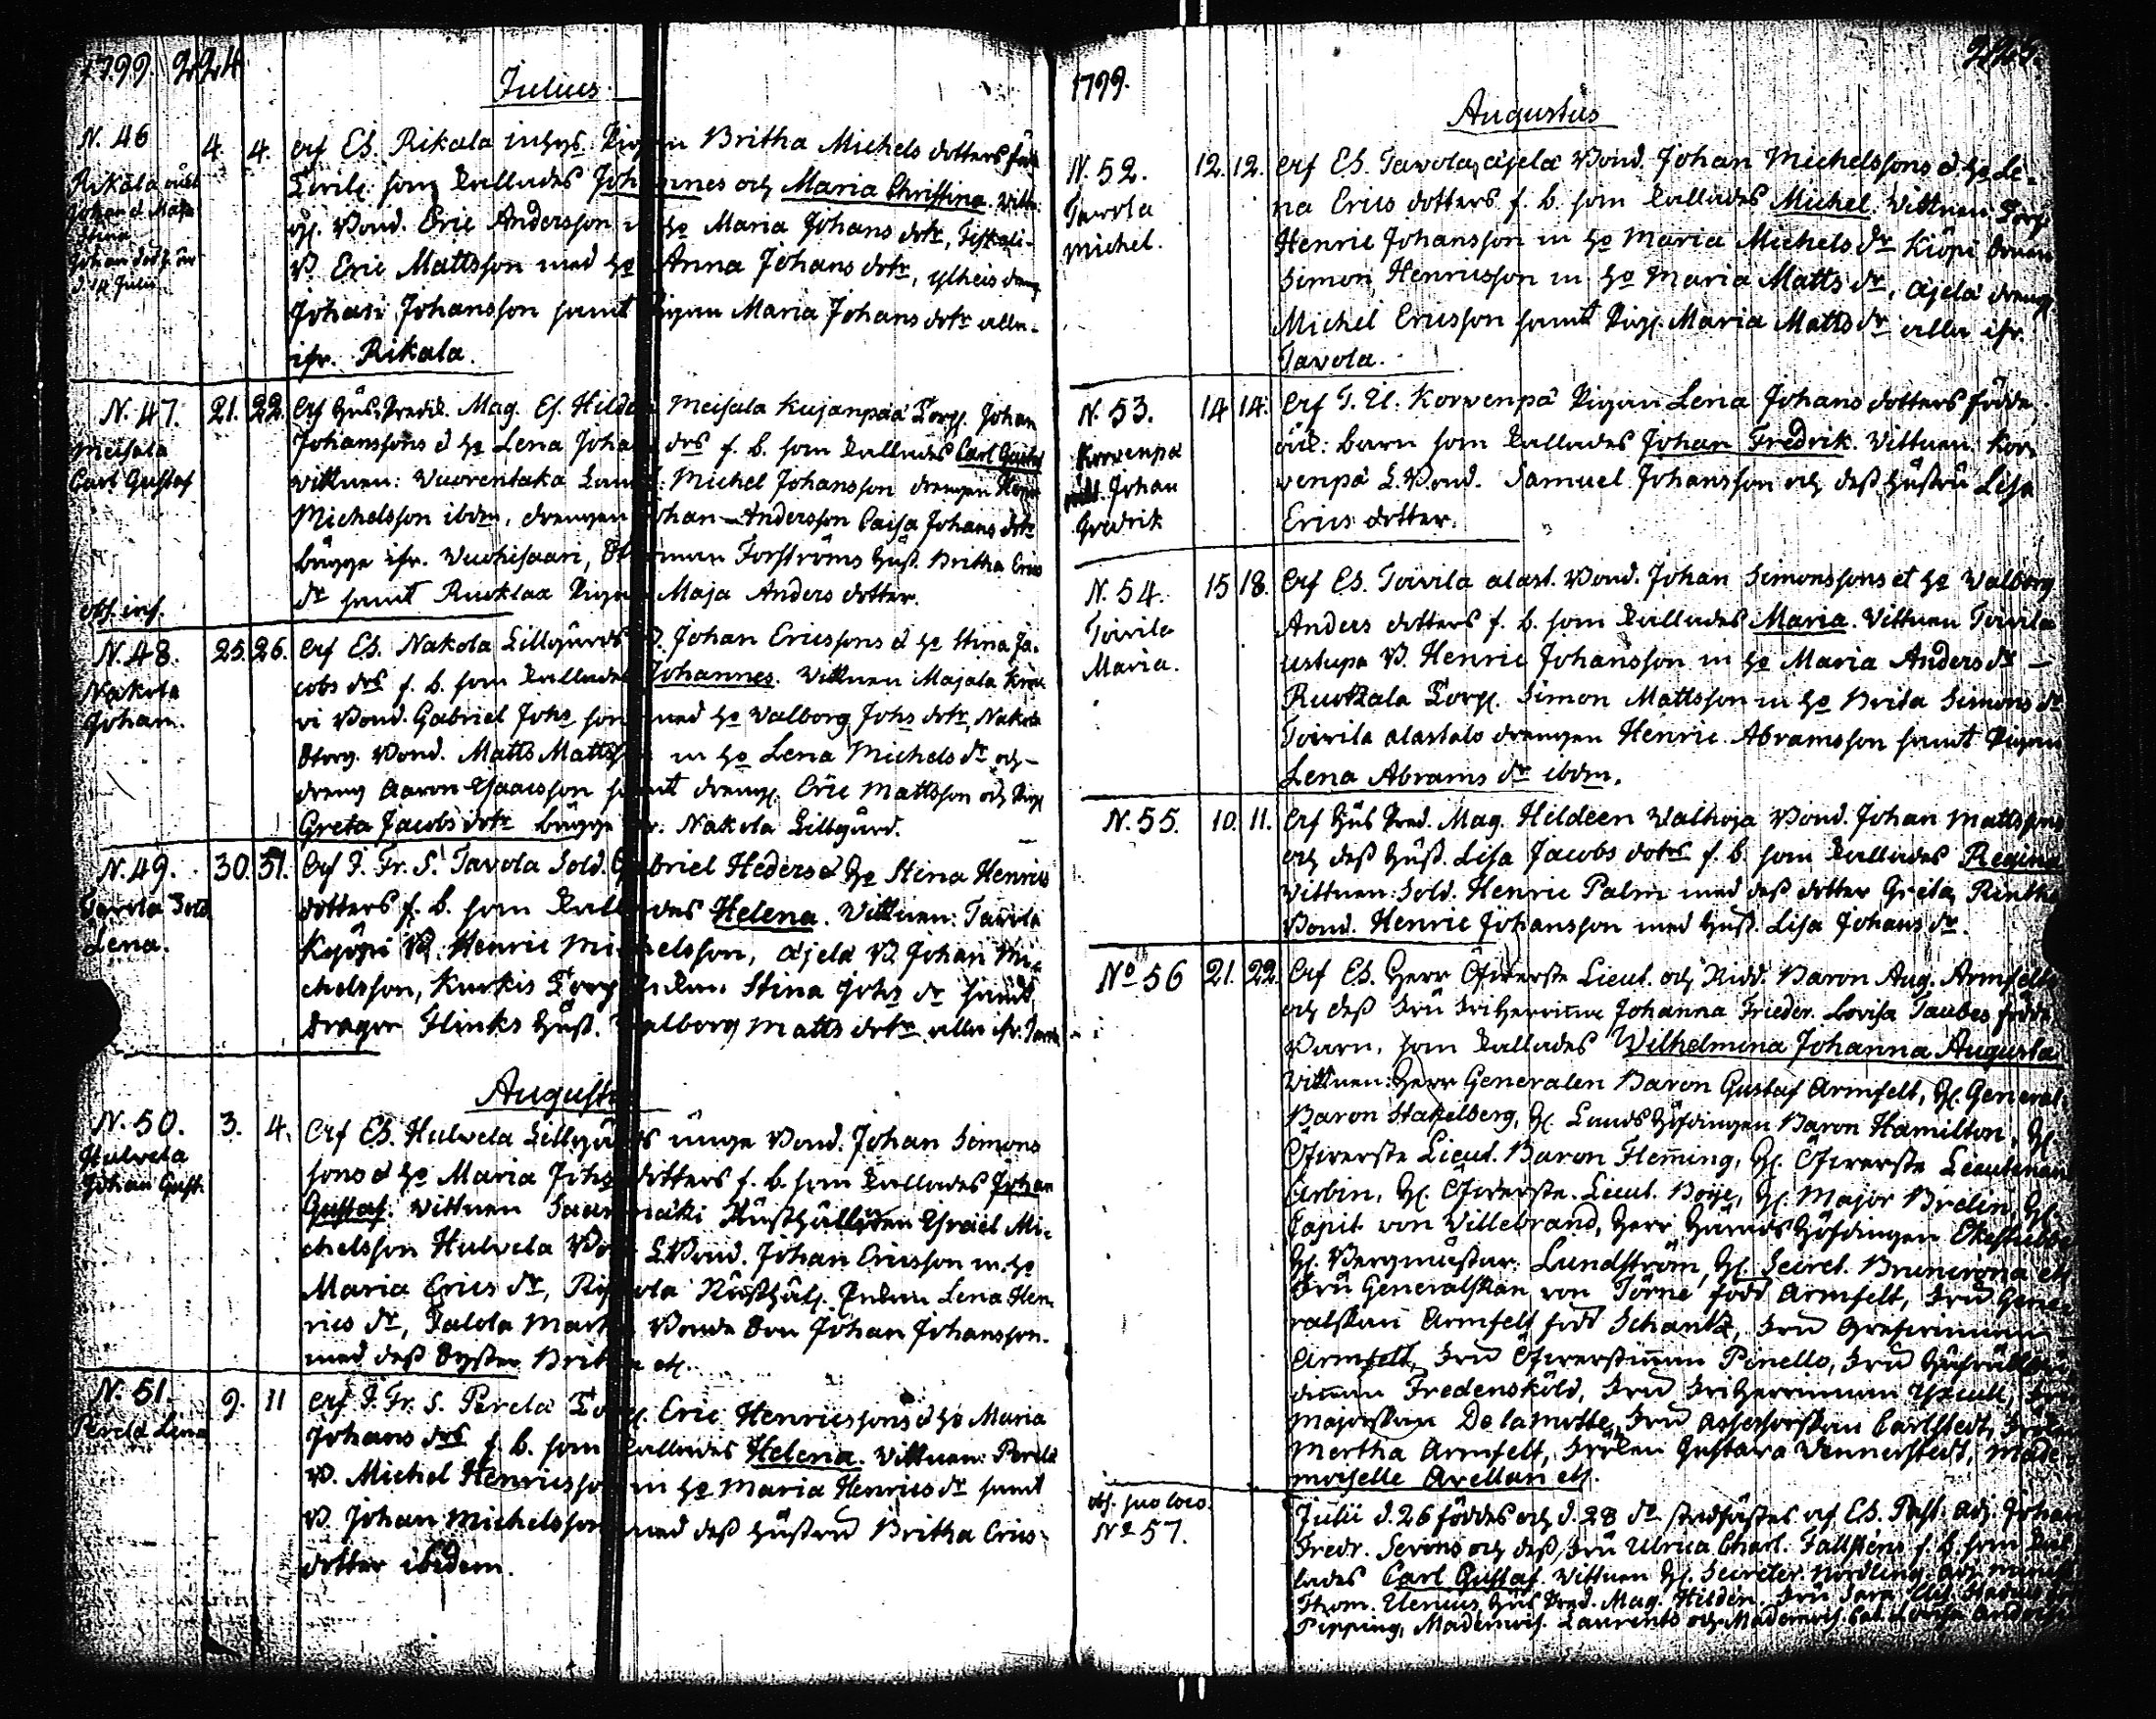 1799. 224
Julius
N. 46
Rikala
Johan d Maja
Stina
Johan död
d. 14 Julii
4. 4. af Es. Rikala inhys Pigan Britha Michels dotters
som kallades Johannes och Maria Christina. Vittn:
Bond. Eric Andersson Maria Johans dotr,
B. Eric Mattsson med ho Anna Johans dotr, ylheis dreng
Johan Johansson samt Pigan Maria Johans dotr alla
ifr. Rikala.
N. 47.
Meisala
Carl Gustaf
21. 22. af Hus Predik. Mag. Es. Hildén Meisala Kujanpää Torp. Johan
Johanssons d ho Lena Johans drs f. b. som kallades Carl Gustaf
vittnen: Vuorentaka Michel Johansson drengen
Michelsson ibdm, drengen Johan Andersson Caisa Johans dotr
bägge ifr. Vuohisaari, Forströms Hust. Britha Erics
dr samt Ruotlax Pigan Maja Anders dotter.
N. 48.
Nakola
Johan.
25. 26. af Es. Nakola Lillgårds B. Johan Ericssons d ho Stina Ja-
cobs drs f. b. som kallades Johannes. Vittnen Majala
Bond. Gabriel Johs son med ho Valborg Johs dotr, Nakola
Storg. Bond. Matts Mattsson m ho Lena Michels dr och
dreng Aaron Isaacsson samt dreng. Eric Mattsson och Pig.
Greta Jacobs dotr bägge ifr. Nakola Lillgård.
N. 49.
Tavola Sold
Lena.
30. 31. af F. Fr. S. Tavola Sold. Gabriel Heders d ho Stina Henrics
dotters f. b. som kallades Helena. Vittnen: Tavola
Kiöpi B. Henric Michelsson, äjelä B. Johan Mi-
chelsson, Kurkis Torp Enkan Stina Johs dr samt
Dragon Flinks Hust. Valborg Matts dotr alla ifr. Tavola
Augusti
N. 50.
Hulvela
Johan Gust.
3. 4. af Es. Hulvela Lillgårds unge Bond. Johan Simons
sons d ho Maria Johs dotters f. b. som kallades Johan
Gustaf. Vittnen Saarimäki Rusthållaren Israel Mi-
chelsson Hulvela Bond. Johan Ericsson m ho
Maria Erics dr, Rusthål. Enkan Lena Hen-
rics dr, Talola Bonde Son Johan Johansson
med dess Syster Britha etc.
N. 51.
Perelä Lena
9. 11 af F. Fr. S. Perelä Torp. Eric Henricssons d ho Maria
Johans drs f. b. som kallades Helena. Vittnen: Perelä
B. Michel Henricsson m ho Maria Henrics dr samt
B. Johan Michelsson med dess hustru Britha Erics
dotter ibidem.
1799.
Augustus
N. 52.
Tavola
Michel.
12. 12. af Es. Tavola äjelä Bond. Johan Michelssons d ho Le-
na Erics dotters f. b. som kallades Michel. Vittnen Torp
Henric Johansson m ho Maria Michels dr Kiöpi
Simon Henricsson m ho Maria Matts dr, äjelä dreng.
Michel Ericsson samt Pig. Maria Matts dr alla ifr.
Tavola.
N. 53.
Korvenpä
Johan
Fredrik
14 14. af T. El. Korvenpä Pigan Lena Johans dotters födde
oäk: barn som kallades Johan Fredrik. Vittnen Kor-
venpä L. Bond. Samuel Johansson och dess hustru Lisa
Erics dotter.
N. 54.
Toivila
Maria.
15 18. af Es. Toivila alast. Bond. Johan Simonssons et ho Walborg
Anders dotters f. b. som kallades Maria. Vittnen Toivila
B. Henric Johansson m ho Maria Anders dr
Ruokala Torp. Simon Mattsson m ho Brita Simons dr
Toivila alastalo drengen Henric Abramsson samt Pigan
Lena Abrams dr ibdm.
N. 55. 10. 11. af Hus Pred. Mag. Hildeen Walhoja Bond. Johan Mattssons
och dess Hust. Lisa Jacobs dotrs f. b. som kallades Regina
Vittnen: Sold. Henric Palm med dess dotter Greta,
Bond. Henric Johansson med Hust. Lisa Johans dr.
No 56 21. 22. af Es. Herr Öfverste Lieut. och Ridd. Baron Aug. Armfelts
och dess Fru Friherrinna Johanna Frieder. Lovisa Taubes födde
Barn, som kallades Wilhelmina Johanna Augusta
Vittnen: Herr Generalen Baron Gustaf Armfelt, H. General
Baron Stakelberg, H. Landshöfdingen Baron Hamilton, H.
Öfverste Lieut. Baron Fleming, H. Öfverste Lieutenant
Arbin, H. Öfverste Lieut. Boije, H. Major Brelin, H.
Capit von Willebrand, Herr Häradshöfdingen Ekestubbe
H. Bergmästar. Lundström, H. Secret. Brunerona etc
Fru Generalskan von Törne född Armfelt, Fru Gene-
ralskan Armfelt född Schantz, Fru Grefvinnan
Armfelt, Fru Öfverstinnan Pinello, Fru
Fredensköld, Fru Friherrinnan Yxcull,
Majorskan De la motte, Fru Assessorskan Carlstedt, Fröken
Mertha Armfelt, Fröken Gustava Wennerstedt, Made-
moiselle Avellan etc.
obs. suo loco.
No 57.
Julii d. 26 föddes och d. 28 do stadfästes af Es. Past. adj. Johan
Fredr. Severins och dess Fru Ulrica Charl. Falsténs f. b. som kal-
lades Carl Gustaf. Vittnen H. Secreter. Nordling,
Thom. Elenius, Hus Pred. Mag. Hildén. Fru Sara
Pipping, Mademois. Laurents och Mademois.